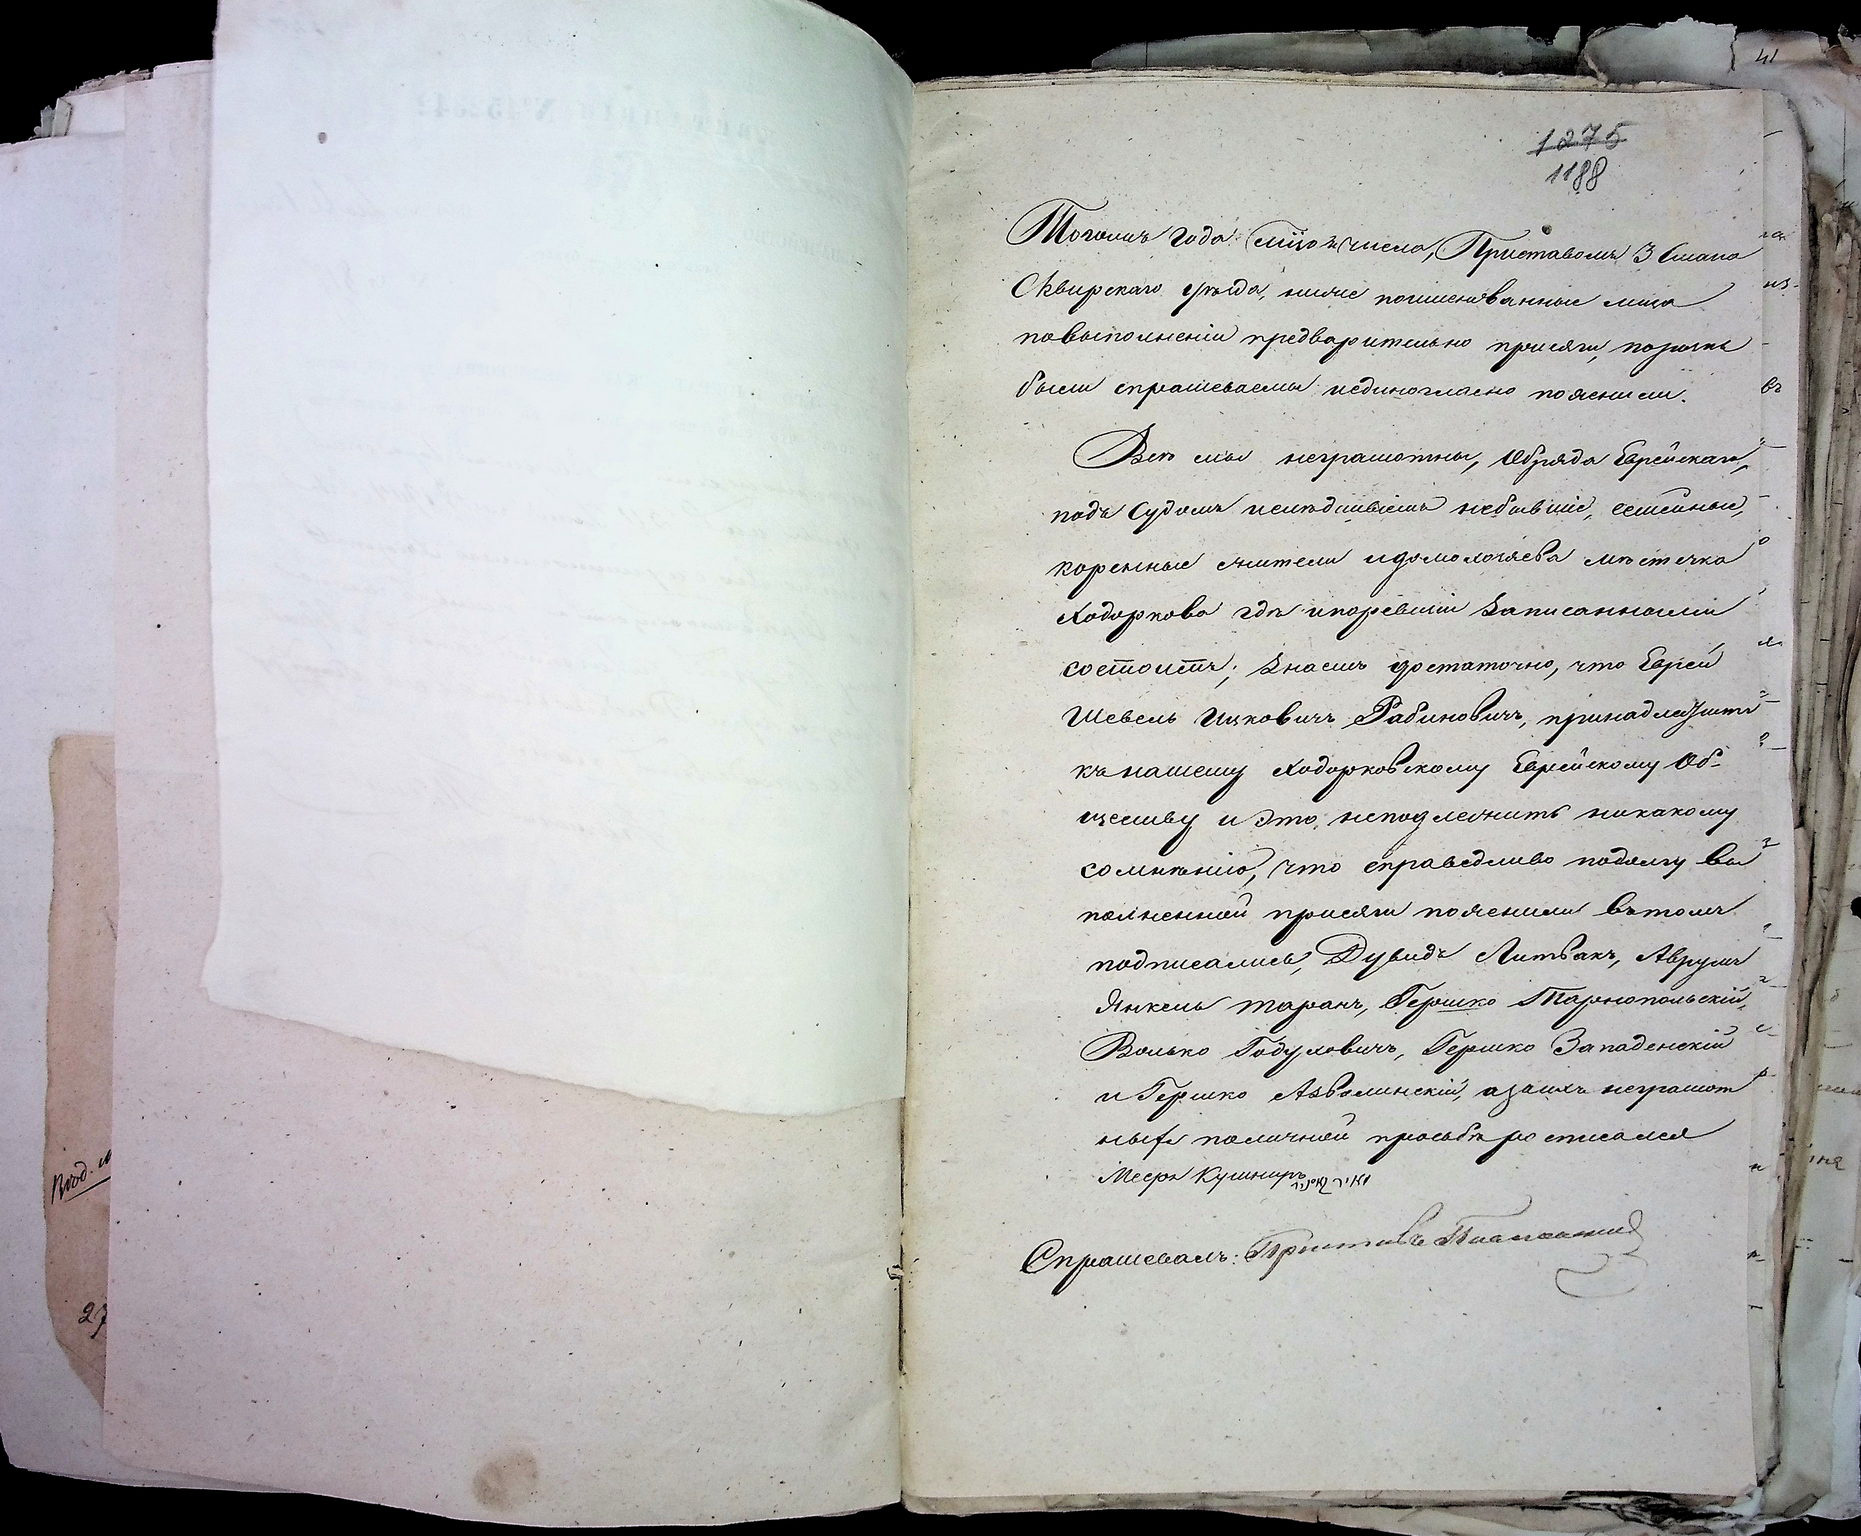 41
1275
1188
Тогожъ года и числа, Приставомъ 3 Стана
Сквирскаго уѣзда, ниже поименованные лица
повыполненіи предварительно присяги, порознь
были спрашеваемы иединогласно пояснили.
Всѣ мы неграмотны, Обряда Еврейскаго,
подъ Судомъ ислѣдствіемъ небывшіе, семейные,
коренные жители идомохозяева мѣстечка
Ходоркова гдѣ и поревизіи Записанными
состоитъ; Знаемъ достаточно, что Еврей
Шевель Ицковичъ Рабиновичъ, принадлежитъ
къ нашему Ходорковскому Еврейскому Об-
ществу и это неподлежитъ никакому
сомненію, что справедливо подолгу вы
полненной присяги пояснили въ томъ
подписались, Дувидъ Литвакъ, Аврумъ
Янкель Таранъ, Гершко Тарнопольскій,
Волько Годуловичъ, Гершко Западенскій
и Гершко Азволинскій, азаихъ неграмот
ныхъ поличной просьбѣ росписался
Мееръ Кушниръ מאיר קושניר
Спрашевалъ: Приставъ
Вход.
27